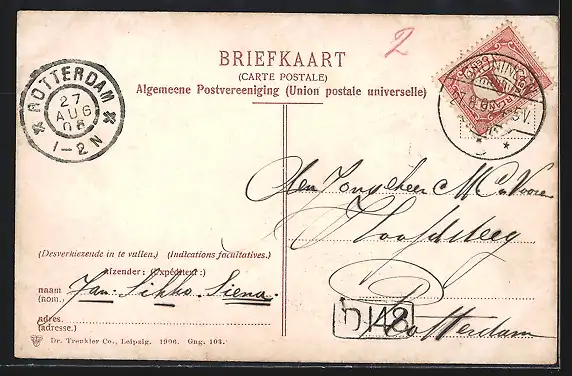 2
BRIEFKAART
(CARTE POSTALE)
Algemeene Postvereeniging (Union postale universelle)
ROTTERDAM
27
AUG
06
1-2 N
Den Jongeheer
Hoofdsteeg
D148
Rotterdam
(Desverkiezende in te vullen.) (Indications facultatives.)
Afzender: (Expéditeur:)
naam
(nom.)
Jan. Sikko. Siena.
adres.
(adresse.)
Dr. Trenkler Co., Leipzig. 1906. Gng. 103.